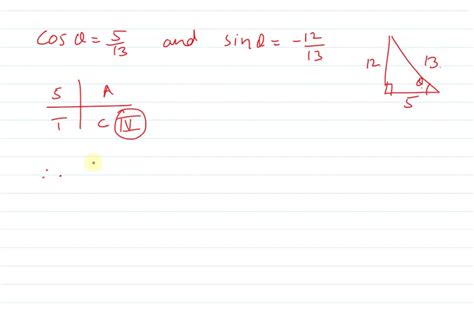 cos θ = 5/13 and sin θ = -12/13
12 13
θ
5
S A
T C IV
∴